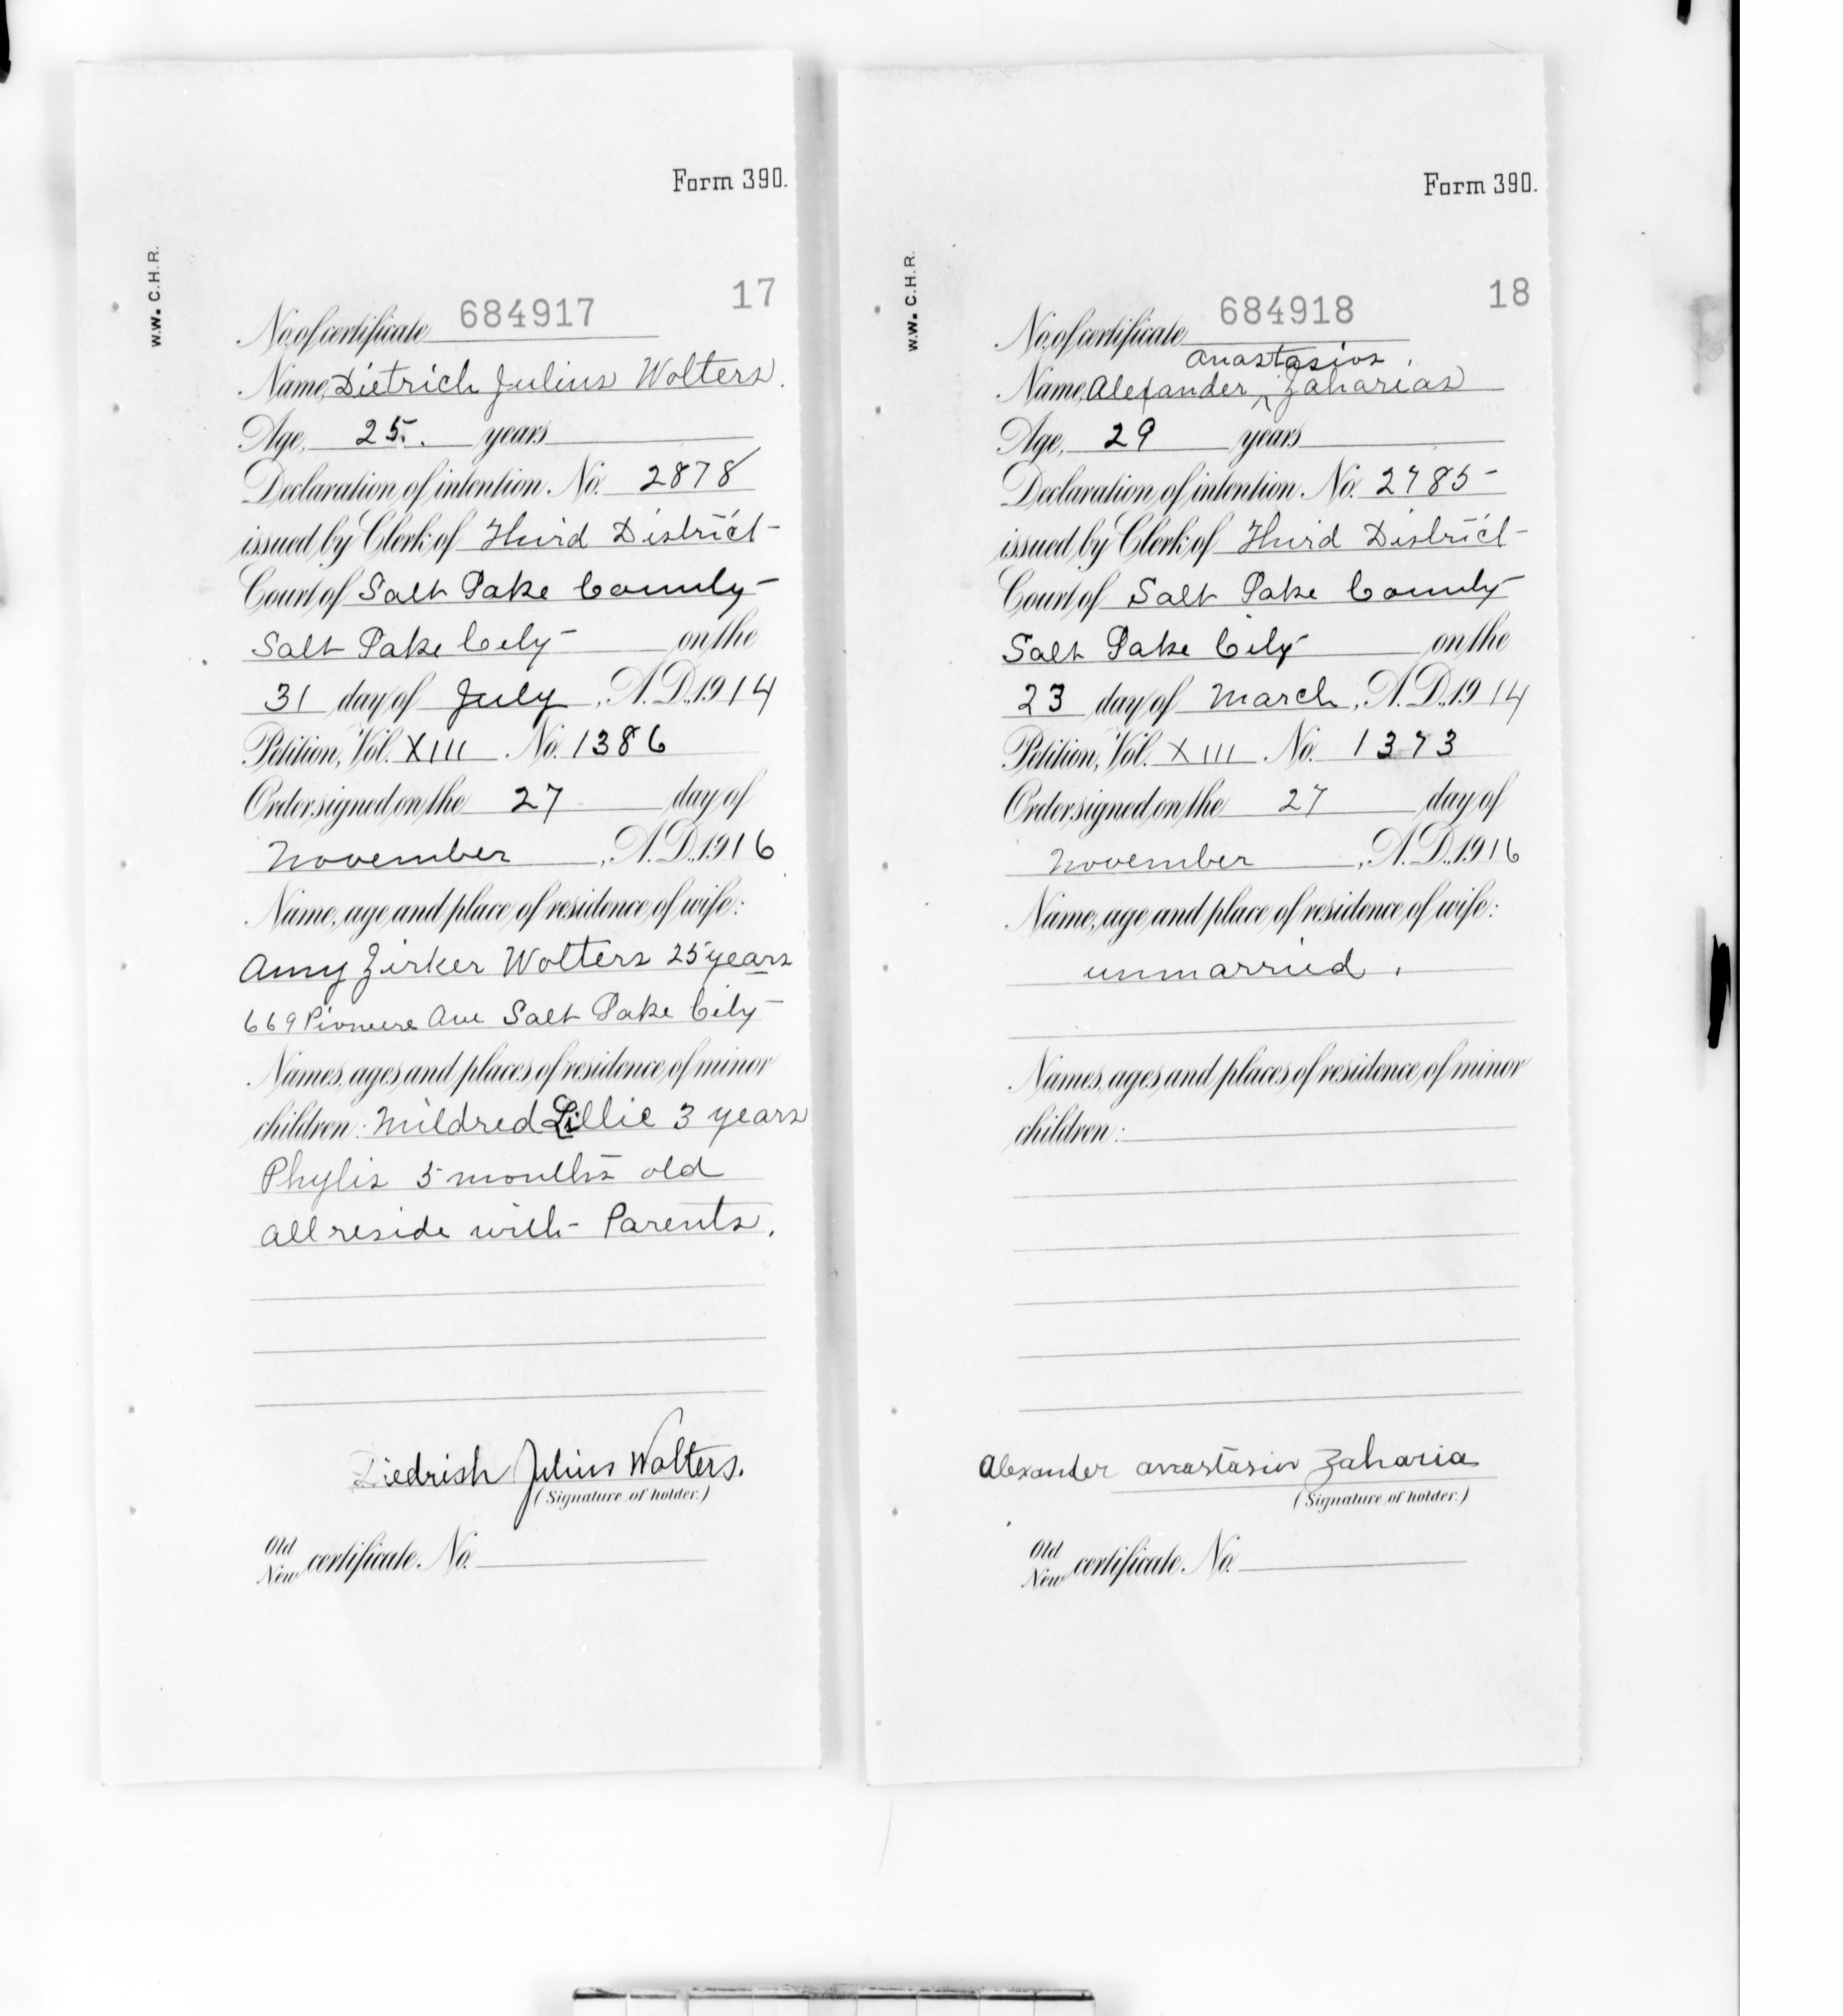 Form 390.
W.W. C.H.R.
17
No. of certificate 684917
Name, Dietrich Julius Wolters.
Age, 25. years
Declaration of intention No. 2878
issued by Clerk of Third District
Court of Salt Lake County
Salt Lake City on the
31 day of July, A.D. 1914
Petition, Vol. XIII No. 1386
Order signed on the 27 day of
November, A.D. 1916
Name, age and place of residence of wife:
Amy Zirker Wolters 25 years
669 Pioneere Ave Salt Lake City
Names, ages and places of residence of minor
children: Mildred Lillie 3 years
Phylis 5 months old
All reside with Parents.
Diedrish Julius Wolters.
(Signature of holder.)
Old
New certificate No.
Form 390.
W.W. C.H.R.
18
No. of certificate 684918
Anastasios
Name, Alexander ^ Zaharias
Age, 29 years
Declaration of intention No. 2785
issued by Clerk of Third District
Court of Salt Lake County
Salt Lake City on the
23 day of March, A.D. 1914
Petition, Vol. XIII No. 1373
Order signed on the 27 day of
November, A.D. 1916
Name, age and place of residence of wife:
unmarried.
Names, ages and places of residence of minor
children:
Alexander anastasiu Zaharia
(Signature of holder.)
Old
New certificate No.